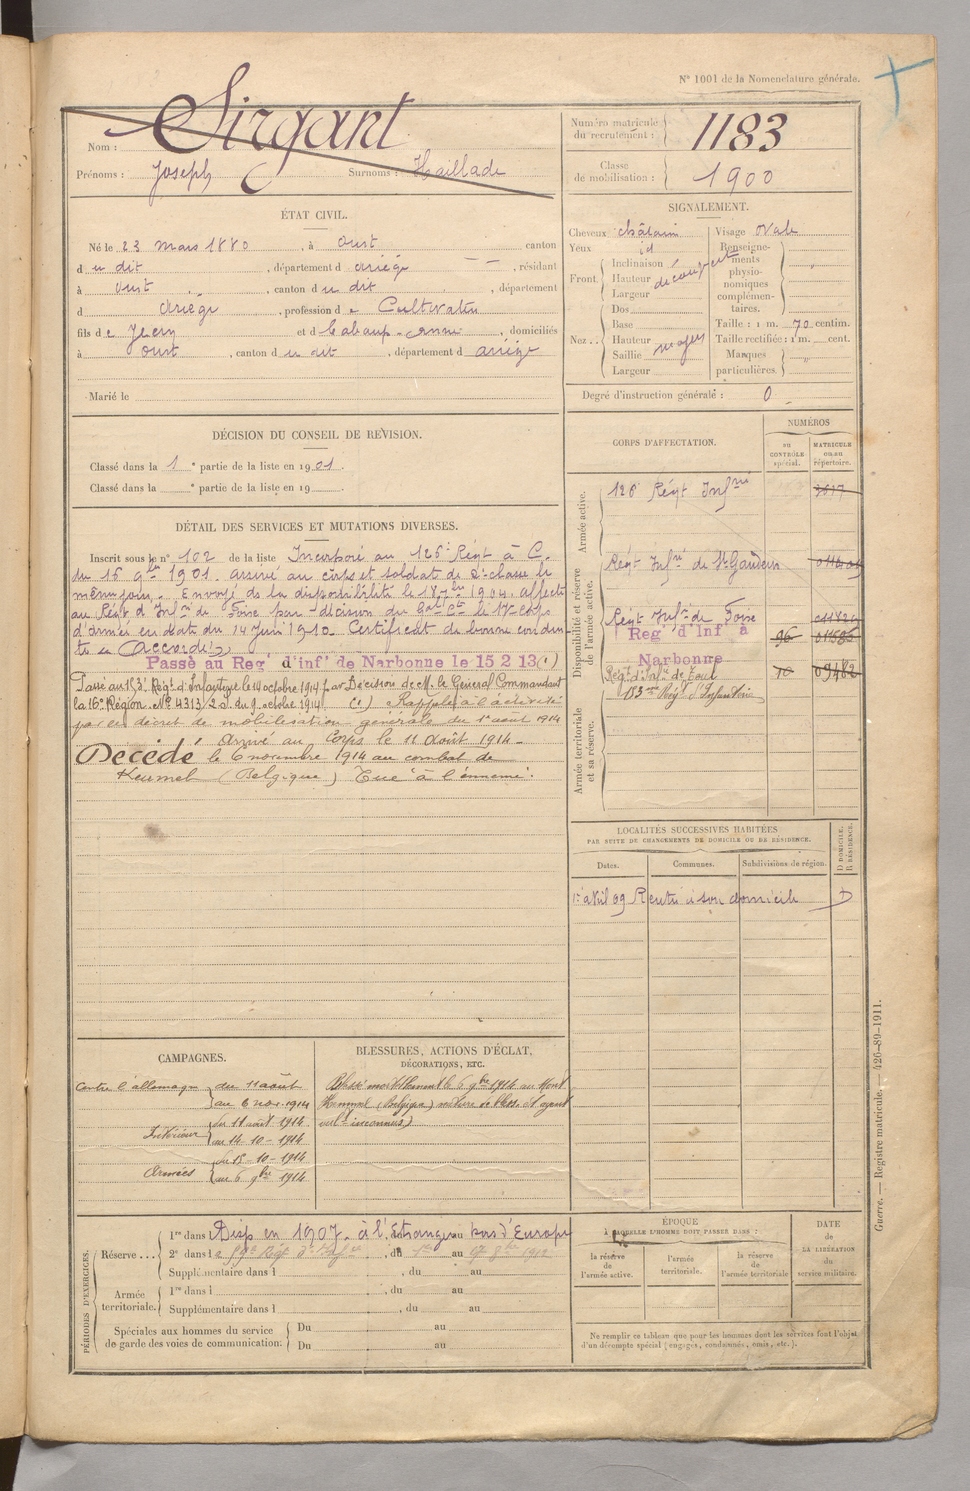 N° 1001 de la Nomenclature générale.
Nom : Sirgant
Prénoms : Joseph Surnoms : Haillade
Numéro matricule du recrutement : 1183
Classe de mobilisation : 1900
ÉTAT CIVIL.
Né le 23 mars 1880, à Oust canton
d u dit, département d Ariège, résidant
à Oust, canton d u dit, département
d Ariège, profession d e Cultivateur
fils d e Jean et d , domiciliés
à Oust, canton d u dit, département d Ariège
Marié le
SIGNALEMENT.
Cheveux châtain
Yeux id
Front. Inclinaison
Hauteur découvert
Largeur
Nez.. Dos
Base
Hauteur moyen
Saillie
Largeur
Visage ovale
Renseignements physionomiques complémentaires. "
Taille : 1 m. 70 centim.
Taille rectifiée : 1 m. cent.
Marques particulières. "
Degré d'instruction générale : 0
DÉCISION DU CONSEIL DE RÉVISION.
Classé dans la 1 e partie de la liste en 1901.
Classé dans la e partie de la liste en 19
DÉTAIL DES SERVICES ET MUTATIONS DIVERSES.
Inscrit sous le n° 102 de la liste Incorporé au 126e Régt à C.
du 16 9bre 1901. arrivé au corps et soldat de 2e classe le
même jour. Envoyé ds la disponibilité le 18 7bre 1904. affecté
au Régt d'Infrie de Foix par décision du Gal Ct le 17e corps
d'armée en date du 14 Juin 1910. Certificat de bonne condui-
te « Accordé »
Passé au Reg' d'inf' de Narbonne le 15 2 13 (1)
Passé au 153e Régt d'Infanterie le 14 octobre 1914 par Décision de M. le Général Commandant
la 16e Région. N° 4313/2 d. du 9 octobre 1914 (1) Rappelé à l'activité
par en décret de mobilisation générale du 1er aout 1914
Arrivé au Corps le 11 Août 1914
Décédé le 6 novembre 1914 au combat de
Kemmel (Belgique) Tué à l'ennemi.
CORPS D'AFFECTATION.
NUMÉROS
au CONTRÔLE spécial.
MATRICULE ou au répertoire.
Armée active.
126 Régt Infrie
Disponibilité et réserve de l'armée active.
Régt Infrie de St Gaudens
Régt Infrie de Foix
Reg' d'Inf' à Narbonne 96
Régt d'Infrie de Toul 09482
153me Régt d'Infanterie
Armée territoriale et sa réserve.
LOCALITÉS SUCCESSIVES HABITÉES
PAR SUITE DE CHANGEMENTS DE DOMICILE OU DE RÉSIDENCE.
Dates. Communes. Subdivisions de région. D DOMICILE. R RÉSIDENCE.
1er avril 09 Rentré à son domicile D
CAMPAGNES.
Contre l'allemagne du 11 août
au 6 nov. 1914
Intérieur du 11 août 1914
au 14-10-1914
Armées du 15-10-1914
au 6 9bre 1914
BLESSURES, ACTIONS D'ÉCLAT,
DÉCORATIONS, ETC.
Blessé mortellement le 6 9bre 1914 au Mont
Kemmel (Belgique) nature de bless. et agent
vulnt inconnus)
PÉRIODES D'EXERCICES.
Réserve... 1re dans Disp en 1907. à l'Etranger hors d'Europe
2e dans l , du au 1912
Supplémentaire dans l , du au
Armée territoriale. 1re dans l , du au
Supplémentaire dans l , du au
Spéciales aux hommes du service de garde des voies de communication. Du au
Du au
ÉPOQUE
À LAQUELLE L'HOMME DOIT PASSER DANS :
la réserve de l'armée active.
l'armée territoriale.
la réserve de l'armée territoriale
DATE DE LA LIBÉRATION du service militaire.
Ne remplir ce tableau que pour les hommes dont les services font l'objet
d'un décompte spécial (engagés, condamnés, omis, etc.).
Guerre. — Registre matricule. — 426-89-1911.